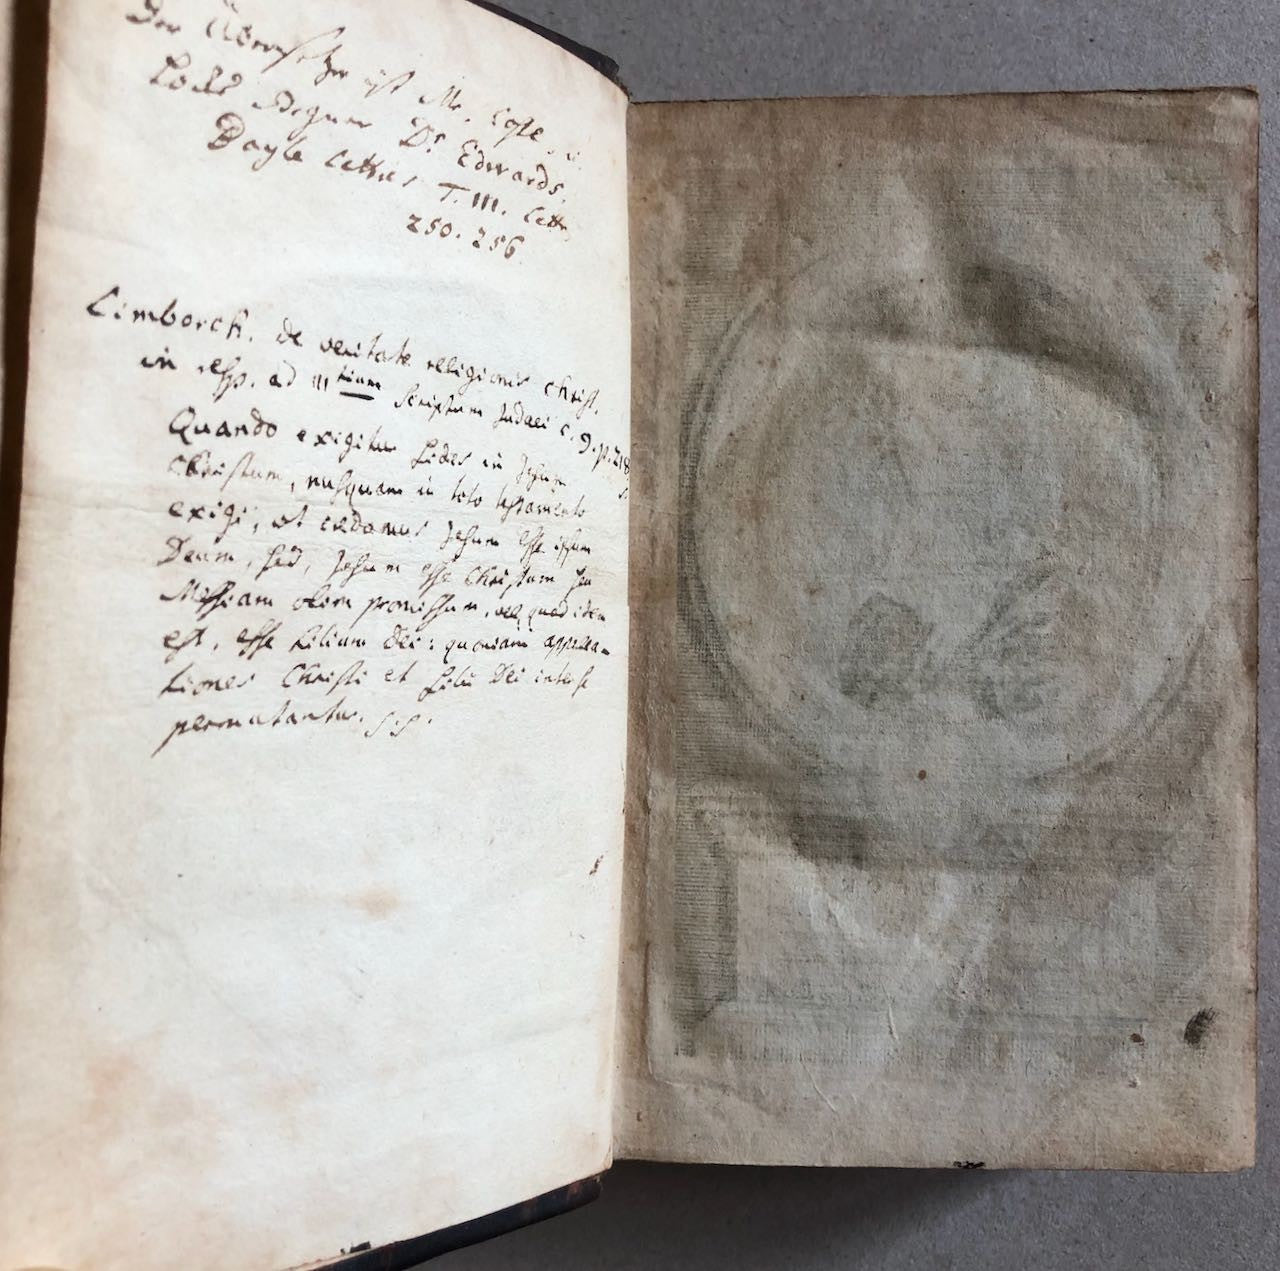 Der Übersetzer ist Mr. Coste
Locks Gegner Dr Edwards.
Bayle Lettres T. III. Lettr
250. 256
Limborch. de veritate religionis Christ.
in resp. ad III tium Scriptum Judaei c. 9. p. 218
Quando exigitur fides in Jesum
Christum, nusquam in toto testamento
exigi, ut credamus Jesum esse ipsum
Deum, sed, Jesum esse Christum seu
Messiam olim promissum, vel, quod idem
est, esse filium Dei: quoniam appella
tiones Christi et filii Dei inter se
permutantur.